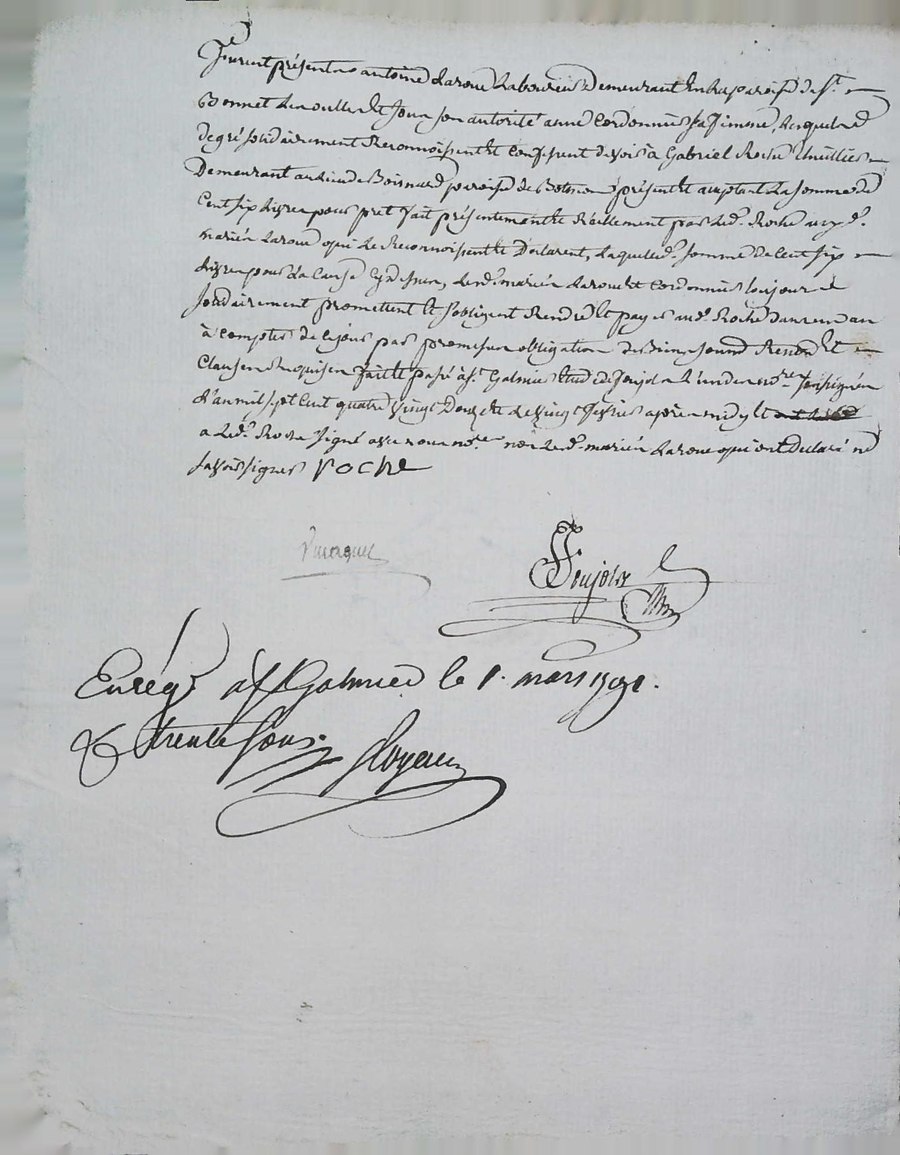 furent présents antoine Laroue Laboureur Demeurant En la paroisse de St.
Bonnet Les oulles et sous son autorité anne Cordonnier sa femme, Lesquels
de gré solidairement Reconnoissent et confessent devoir à Gabriel Roche
Demeurant au lieu de Boisnard paroisse de présent et acceptant La somme de
Cent six Livres pour pret fait présentement et Réellement par Led. Roche auxd.
mariés Laroue qui Le Reconnoissent et Déclarent, Laquelle d. somme de Cent six
Livres pour La cause Lesd. mariés Laroue et Cordonnier toujours
solidairement promettent et s'obligent Rendre et payer aud. Roche dans un an
à compter de ce jour par promesse obligation de Biens soumis Renon. et
Clauses Requises fait et passé à St. Galmier Etude de foujols L'un des nores. soussignés
L'an mil sept Cent quatre vingt Douze et Le vingt fevrier après midy et
a Led. Roche signé avec nous nore. non Lesd. mariés Laroue qui ont Déclaré ne
savoir signer roche
Foujols
Enrég. à St Galmier le 1. mars 1792.
R trente sous.